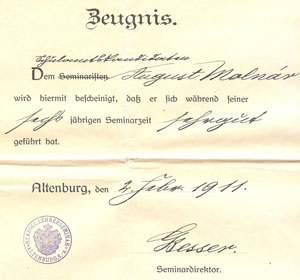 Zeugnis.
Schulamtskandidaten
Dem Seminaristen August Molnár
wird hiermit bescheinigt, daß er sich während seiner
sechsjährigen Seminarzeit sehr gut
geführt hat.
Altenburg, den 2. Febr. 1911.
Besser.
Seminardirektor.